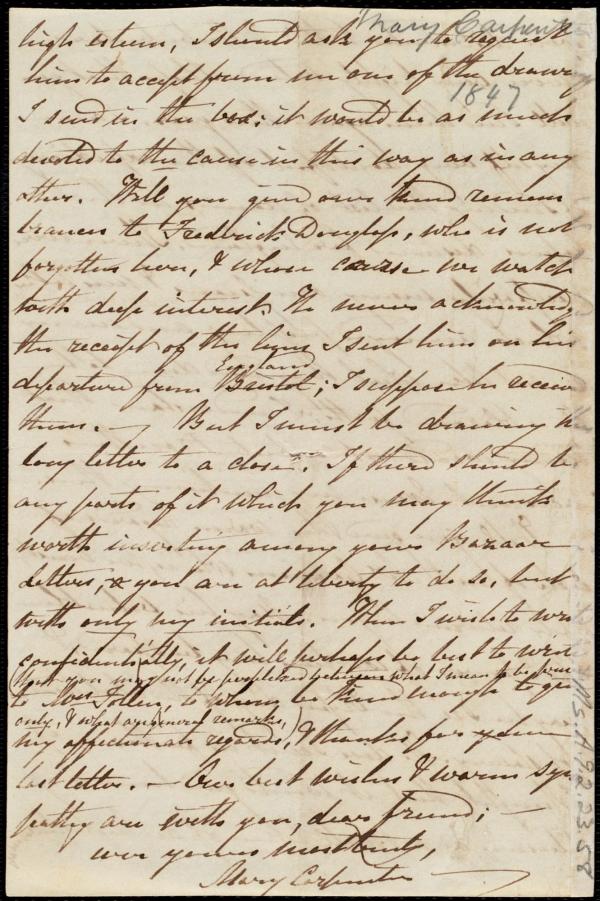 Mary Carpenter
1847
high esteem, I should ask you to request
him to accept from me one of the drawgs
I send in the box; it would be as much
devoted to the cause in this way as in any
other. Will you give our kind remem
brances to Frederick Douglass, who is not
forgotten here, & whose course we watch
with deep interest. He never acknowledged
the receipt of the lines I sent him on his
departure from Bristol; I suppose he receiv
England
them. — But I must be drawing this
long letter to a close. If there should be
any parts of it which you may think
worth inserting among your Bazaar
letters, you are at liberty to do so, but
with only my initials. When I wish to write
confidentially, it will perhaps be best to write
(that you may not be perplexed between what I mean to be private
to Mrs Follen, to whom be kind enough to give
only, & what are general remarks,)
my affectionate regards, & thanks for
last letter. — Our best wishes & warm sym
pathy are with you, dear friend; —
ever yours most truly,
Mary Carpenter
Ms.A.9.2.23.58